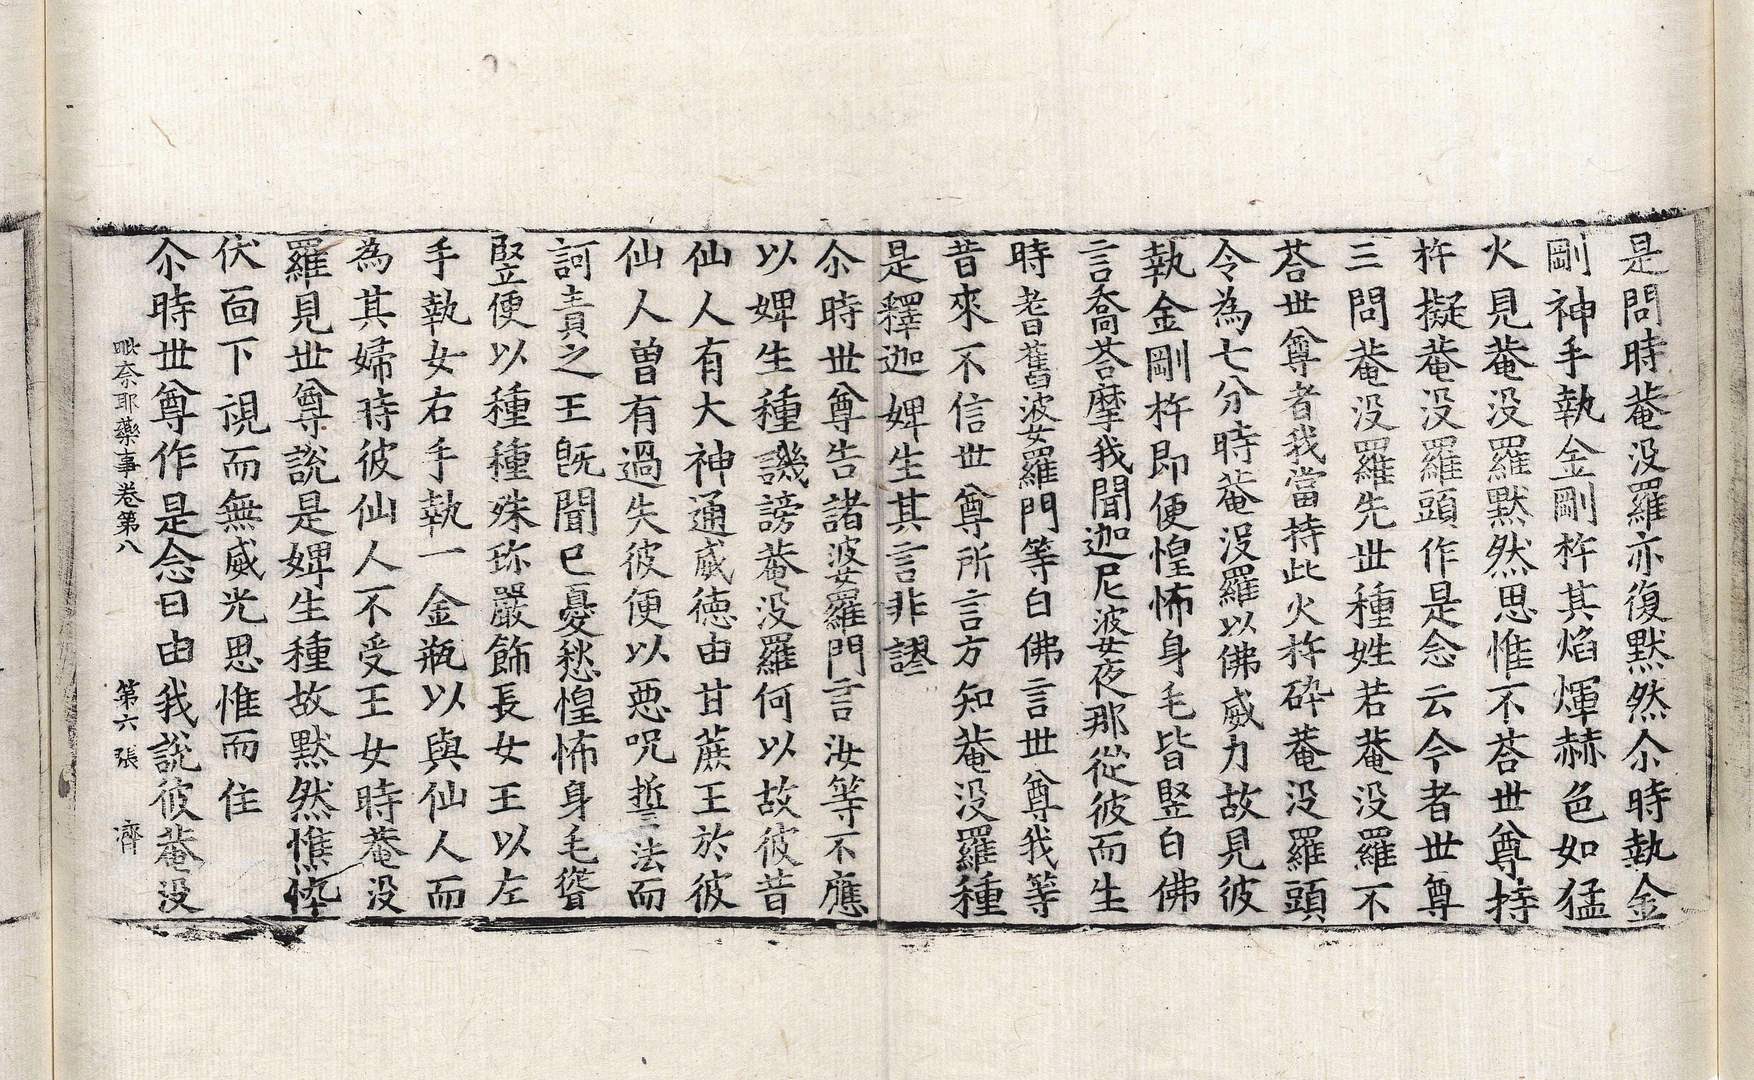 是問時菴没羅亦復默然尒時執金
剛神手執金剛杵其焰煇赫色如猛
火見菴没羅默然思惟不荅世尊持
杵擬菴没羅頭作是念云今者世尊
三問菴没羅先世種姓若菴没羅不
荅世尊者我當持此火杵碎菴没羅頭
令為七分時菴没羅以佛威力故見彼
執金剛杵即便惶怖身毛皆竪白佛
言喬荅摩我聞迦尼婆夜那從彼而生
時耆舊婆羅門等白佛言世尊我等
昔來不信世尊所言方知菴没羅種
是釋迦婢生其言非謬
尒時世尊告諸婆羅門言汝等不應
以婢生種譏謗菴没羅何以故彼昔
仙人有大神通威徳由甘蔗王於彼
仙人曽有過失彼便以惡呪誓法而
訶責之王既聞已憂愁惶怖身毛聳
竪便以種種殊珎嚴飾長女王以左
手執女右手執一金瓶以與仙人而
為其婦時彼仙人不受王女時菴没
羅見世尊說是婢生種故默然憔悴
伏面下視而無威光思惟而住
尒時世尊作是念曰由我說彼菴没
毗奈耶藥事卷第八 第六張 濟